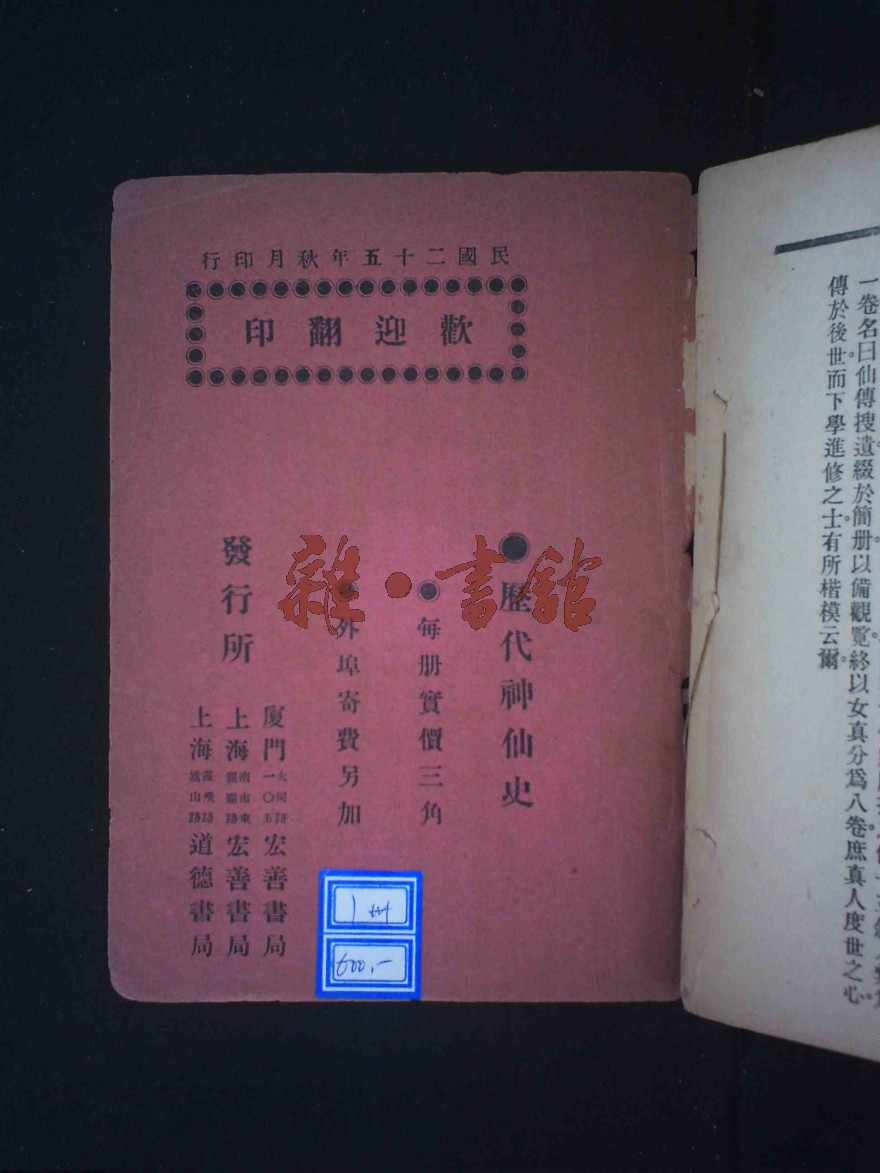 民國二十五年秋月印行
歡迎翻印
●歷代神仙史
●每册實價三角
外埠寄費另加
發行所
廈門大同路一〇五宏善書局
上海南市東宏善書局
上海嵩山路道德書局
雜·書館
1册
600.-
一卷名曰仙傳搜遺綴於簡册以備觀覽終以女真分爲八卷庶真人度世之心。
傳於後世。而下學進修之士。有所楷模云爾。